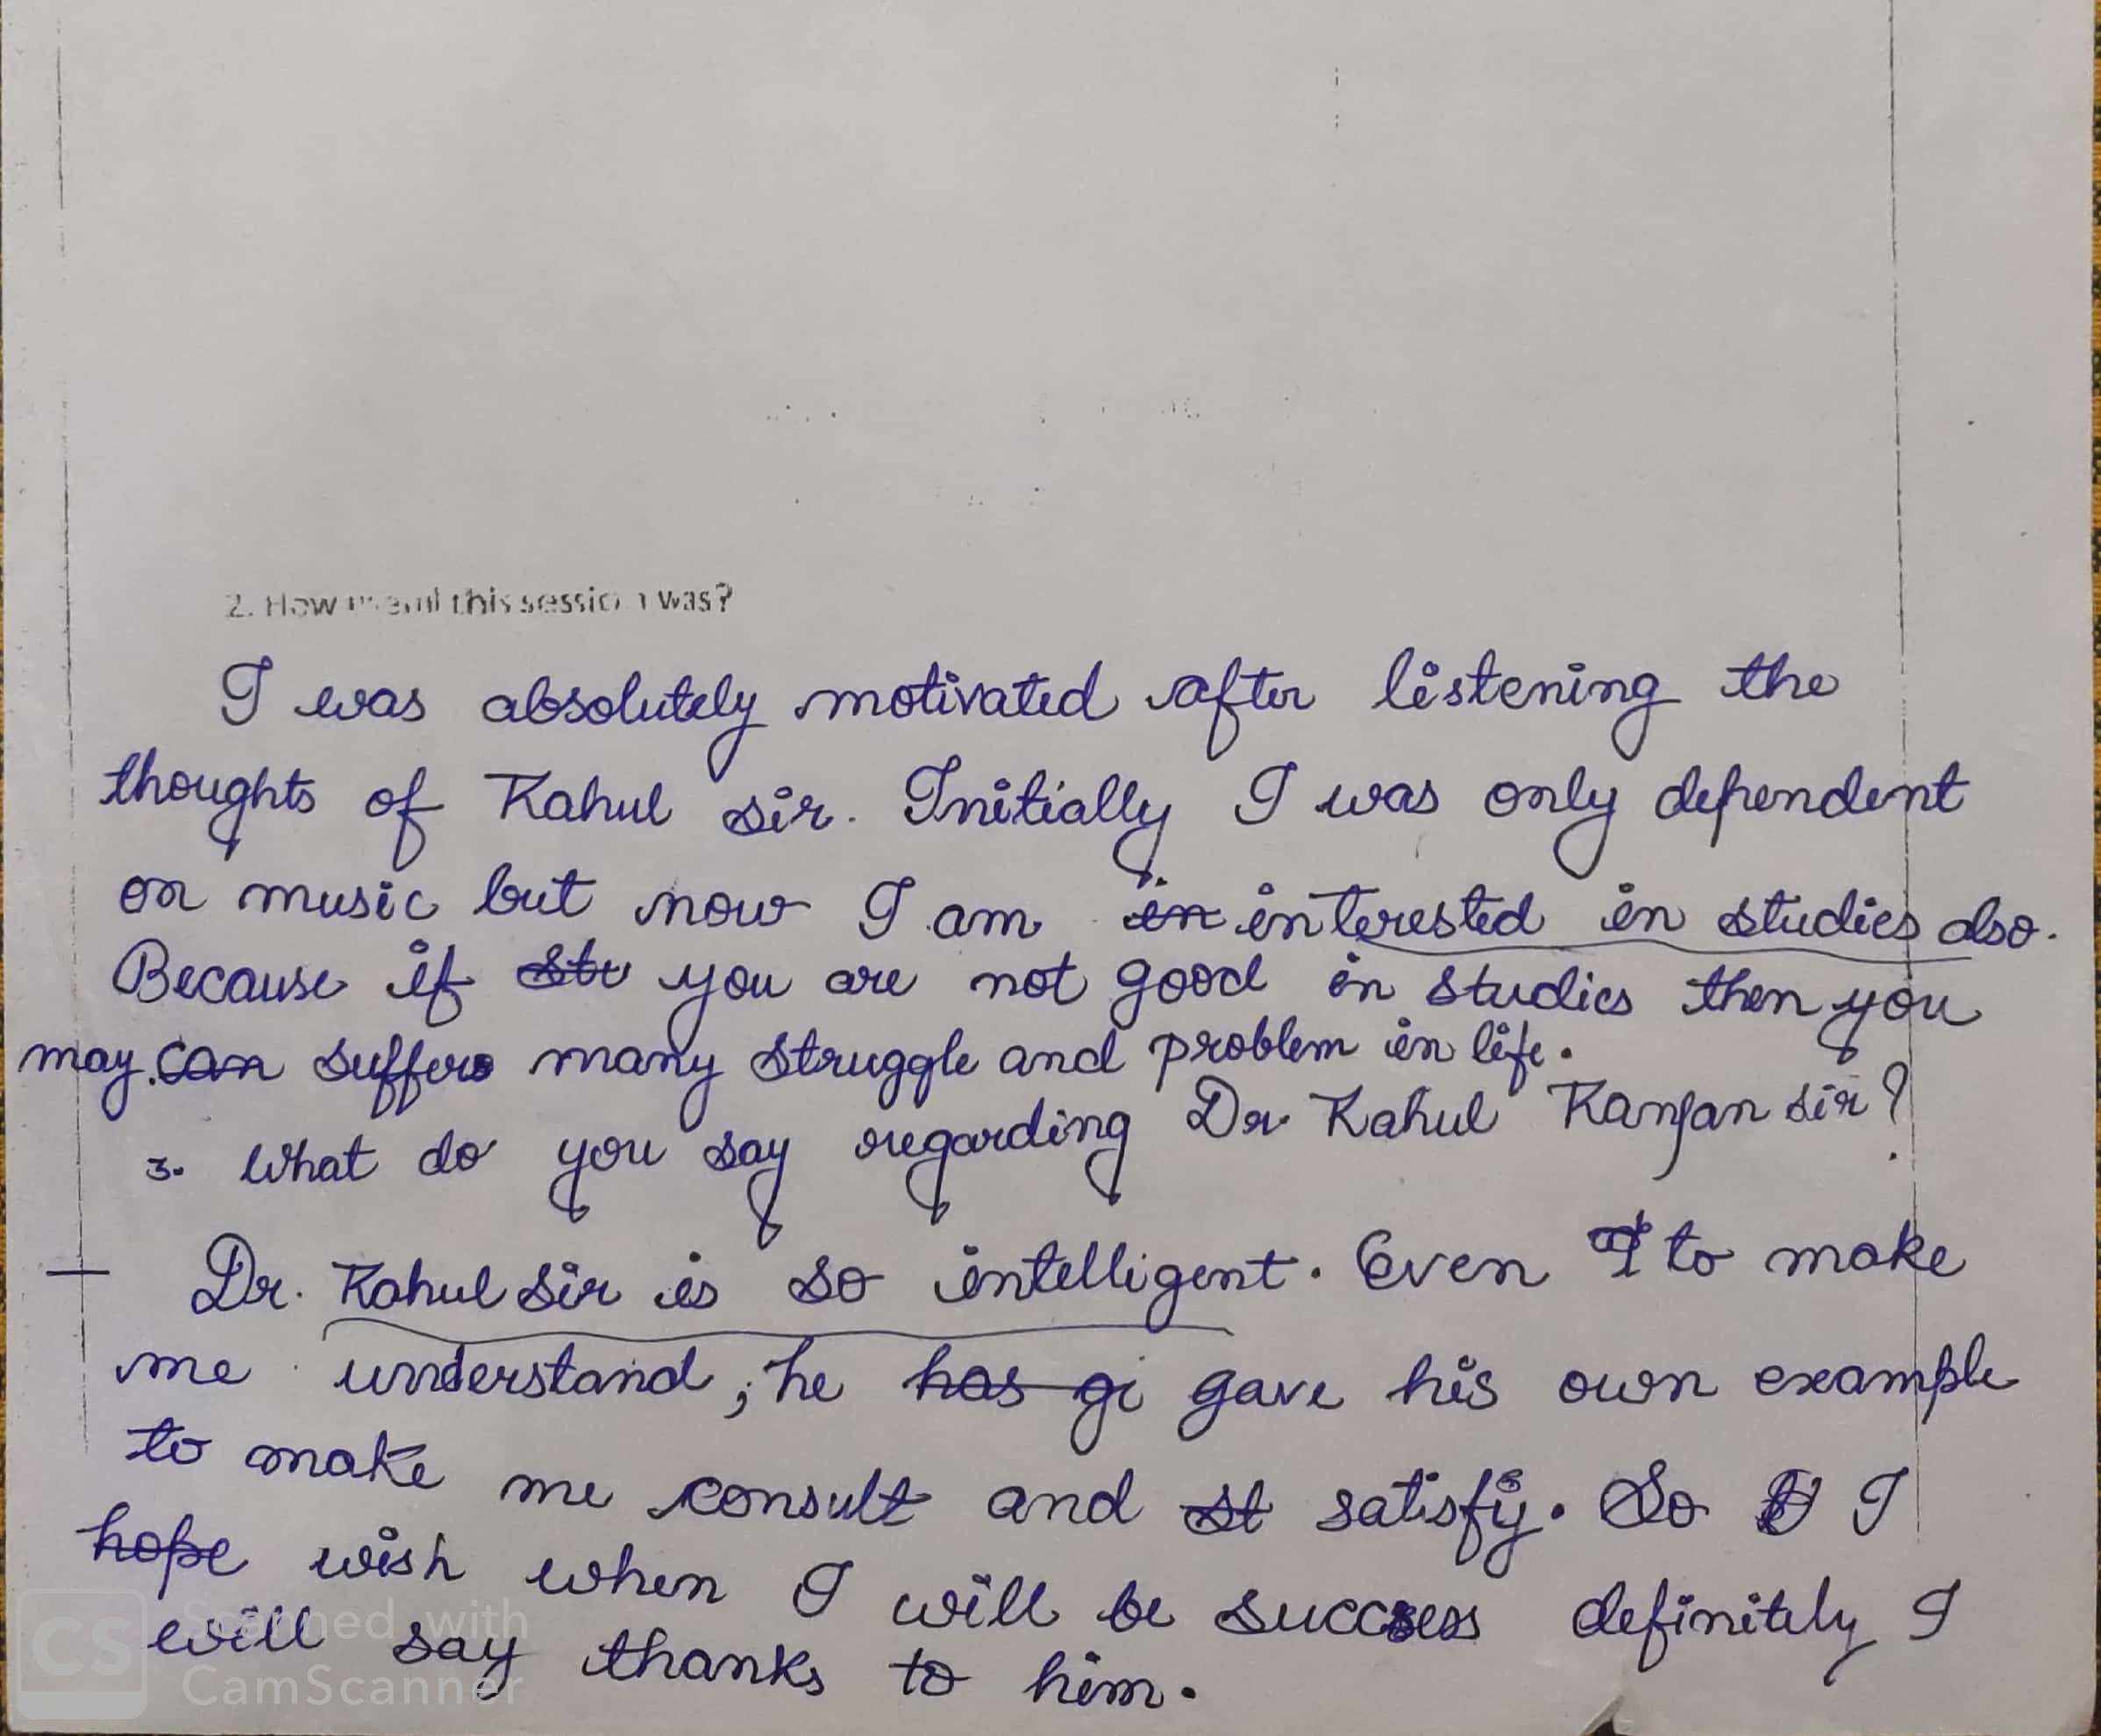 2. How useful this session was?
I was absolutely motivated after listening the
thoughts of Rahul sir. Initially I was only dependent
on music but now I am in interested in studies also.
Because if stu you are not good in studies then you
may can suffer many struggle and problem in life.
3. What do you say regarding Dr Rahul Ranjan sir?
Dr. Rahul sir is so intelligent. Even to make
me understand, he has gi gave his own example
to make me consult and st satisfy. So I
hope wish when I will be success definitely I
will say thanks to him.
CS Scanned with
CamScanner